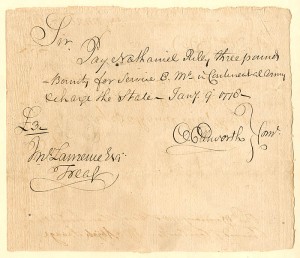 Sir
Pay Nathaniel Riley three pounds
Bounty for Service & Mc in Continental Army
& charge the State - Jany 9th 1778 -
£3..
Jno Lawrence Esqr
Treasr
Com